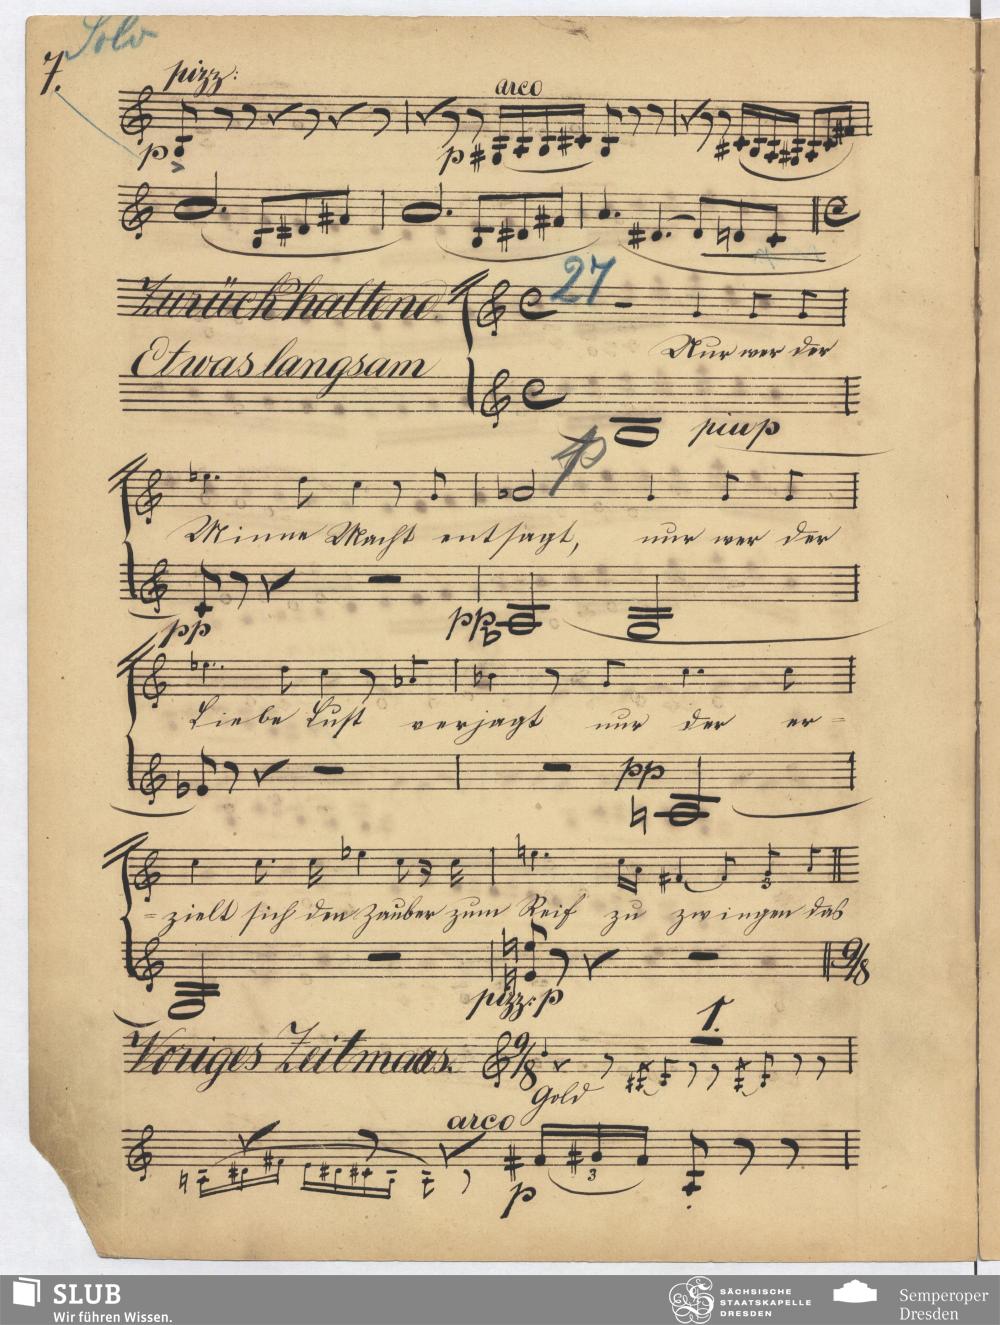 Solo
7.
pizz: arco
p p
Zurückhaltend. 27
Nur wer der
Etwas langsam
p più p
Minne Macht entsagt, nur wer der
pp pp
Liebe Lust verjagt nur der er=
pp
=zielt sich den Zauber zum Reif zu zwingen das
3
pizz: p
9/8
Voriges Zeitmaas. 9/8 1.
Gold
arco
p 3
SLUB
Wir führen Wissen.
SÄCHSISCHE
STAATSKAPELLE
DRESDEN
Semperoper
Dresden